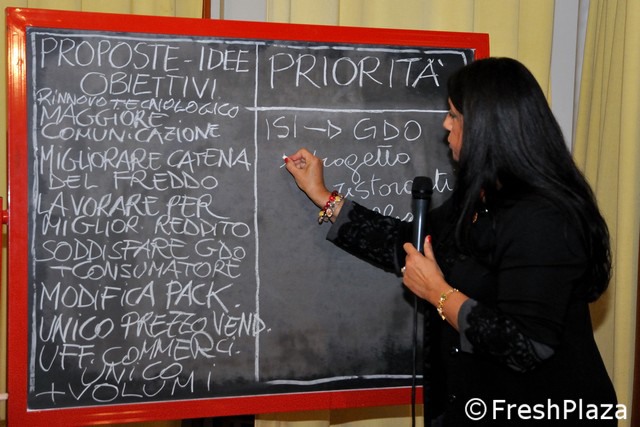 PROPOSTE-IDEE
OBIETTIVI
RINNOVO TECNOLOGICO
MAGGIORE
COMUNICAZIONE
MIGLIORARE CATENA
DEL FREDDO
LAVORARE PER
MIGLIOR REDDITO
SODDISFARE GDO
+ CONSUMATORE
MODIFICA PACK.
UNICO PREZZO VEND.
UFF. COMMERCI.
UNICO
+ VOLUMI
PRIORITÀ
ISI → GDO
© FreshPlaza